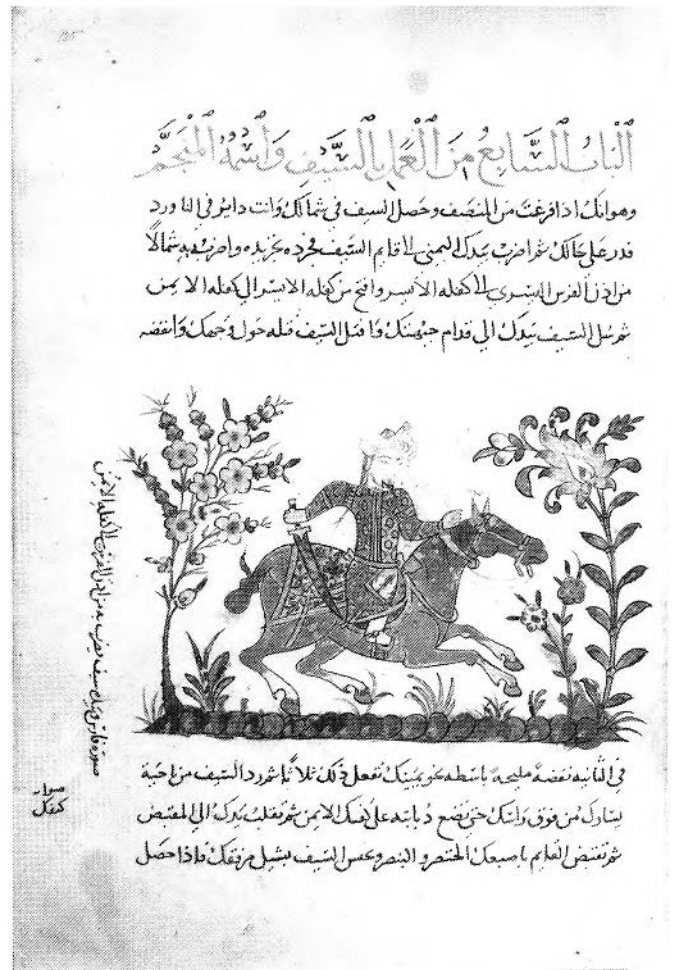 الباب السابع من العمل بالسيف واسمه المنجم
وهو انك اذا فرغت من المنصف وحصل السيف في شمالك وانت داير في الناورد
قدر على حالك ثم اضرب بيدك اليمنى الى قايم السيف فجرده بجريده واضرب به شمالا
من اذن الفرس اليسرى الى كفله الايسر وافتح من كفله الايسر الى كفله الايمن
ثم شل السيف بيدك الى قدام جبهتك وافتل السيف فتله حول وجهك وانفضه
صورة فارس وبيده سيف يضرب به من اذن الفرس الى كفله الايمن
في الثانيه نفضة مليحة باسطه نحو يمينك تفعل ذلك ثلاثا ثم رد السيف من ناحية
يسارك من فوق راسك حتى تضع ذبابته على كتفك الايمن ثم تقلب يدك الى المقبض
صوابه
كفل
ثم تقبض القايم باصبعك الخنصر والبنصر وعس السيف بشيل مرفقك فاذا حصل